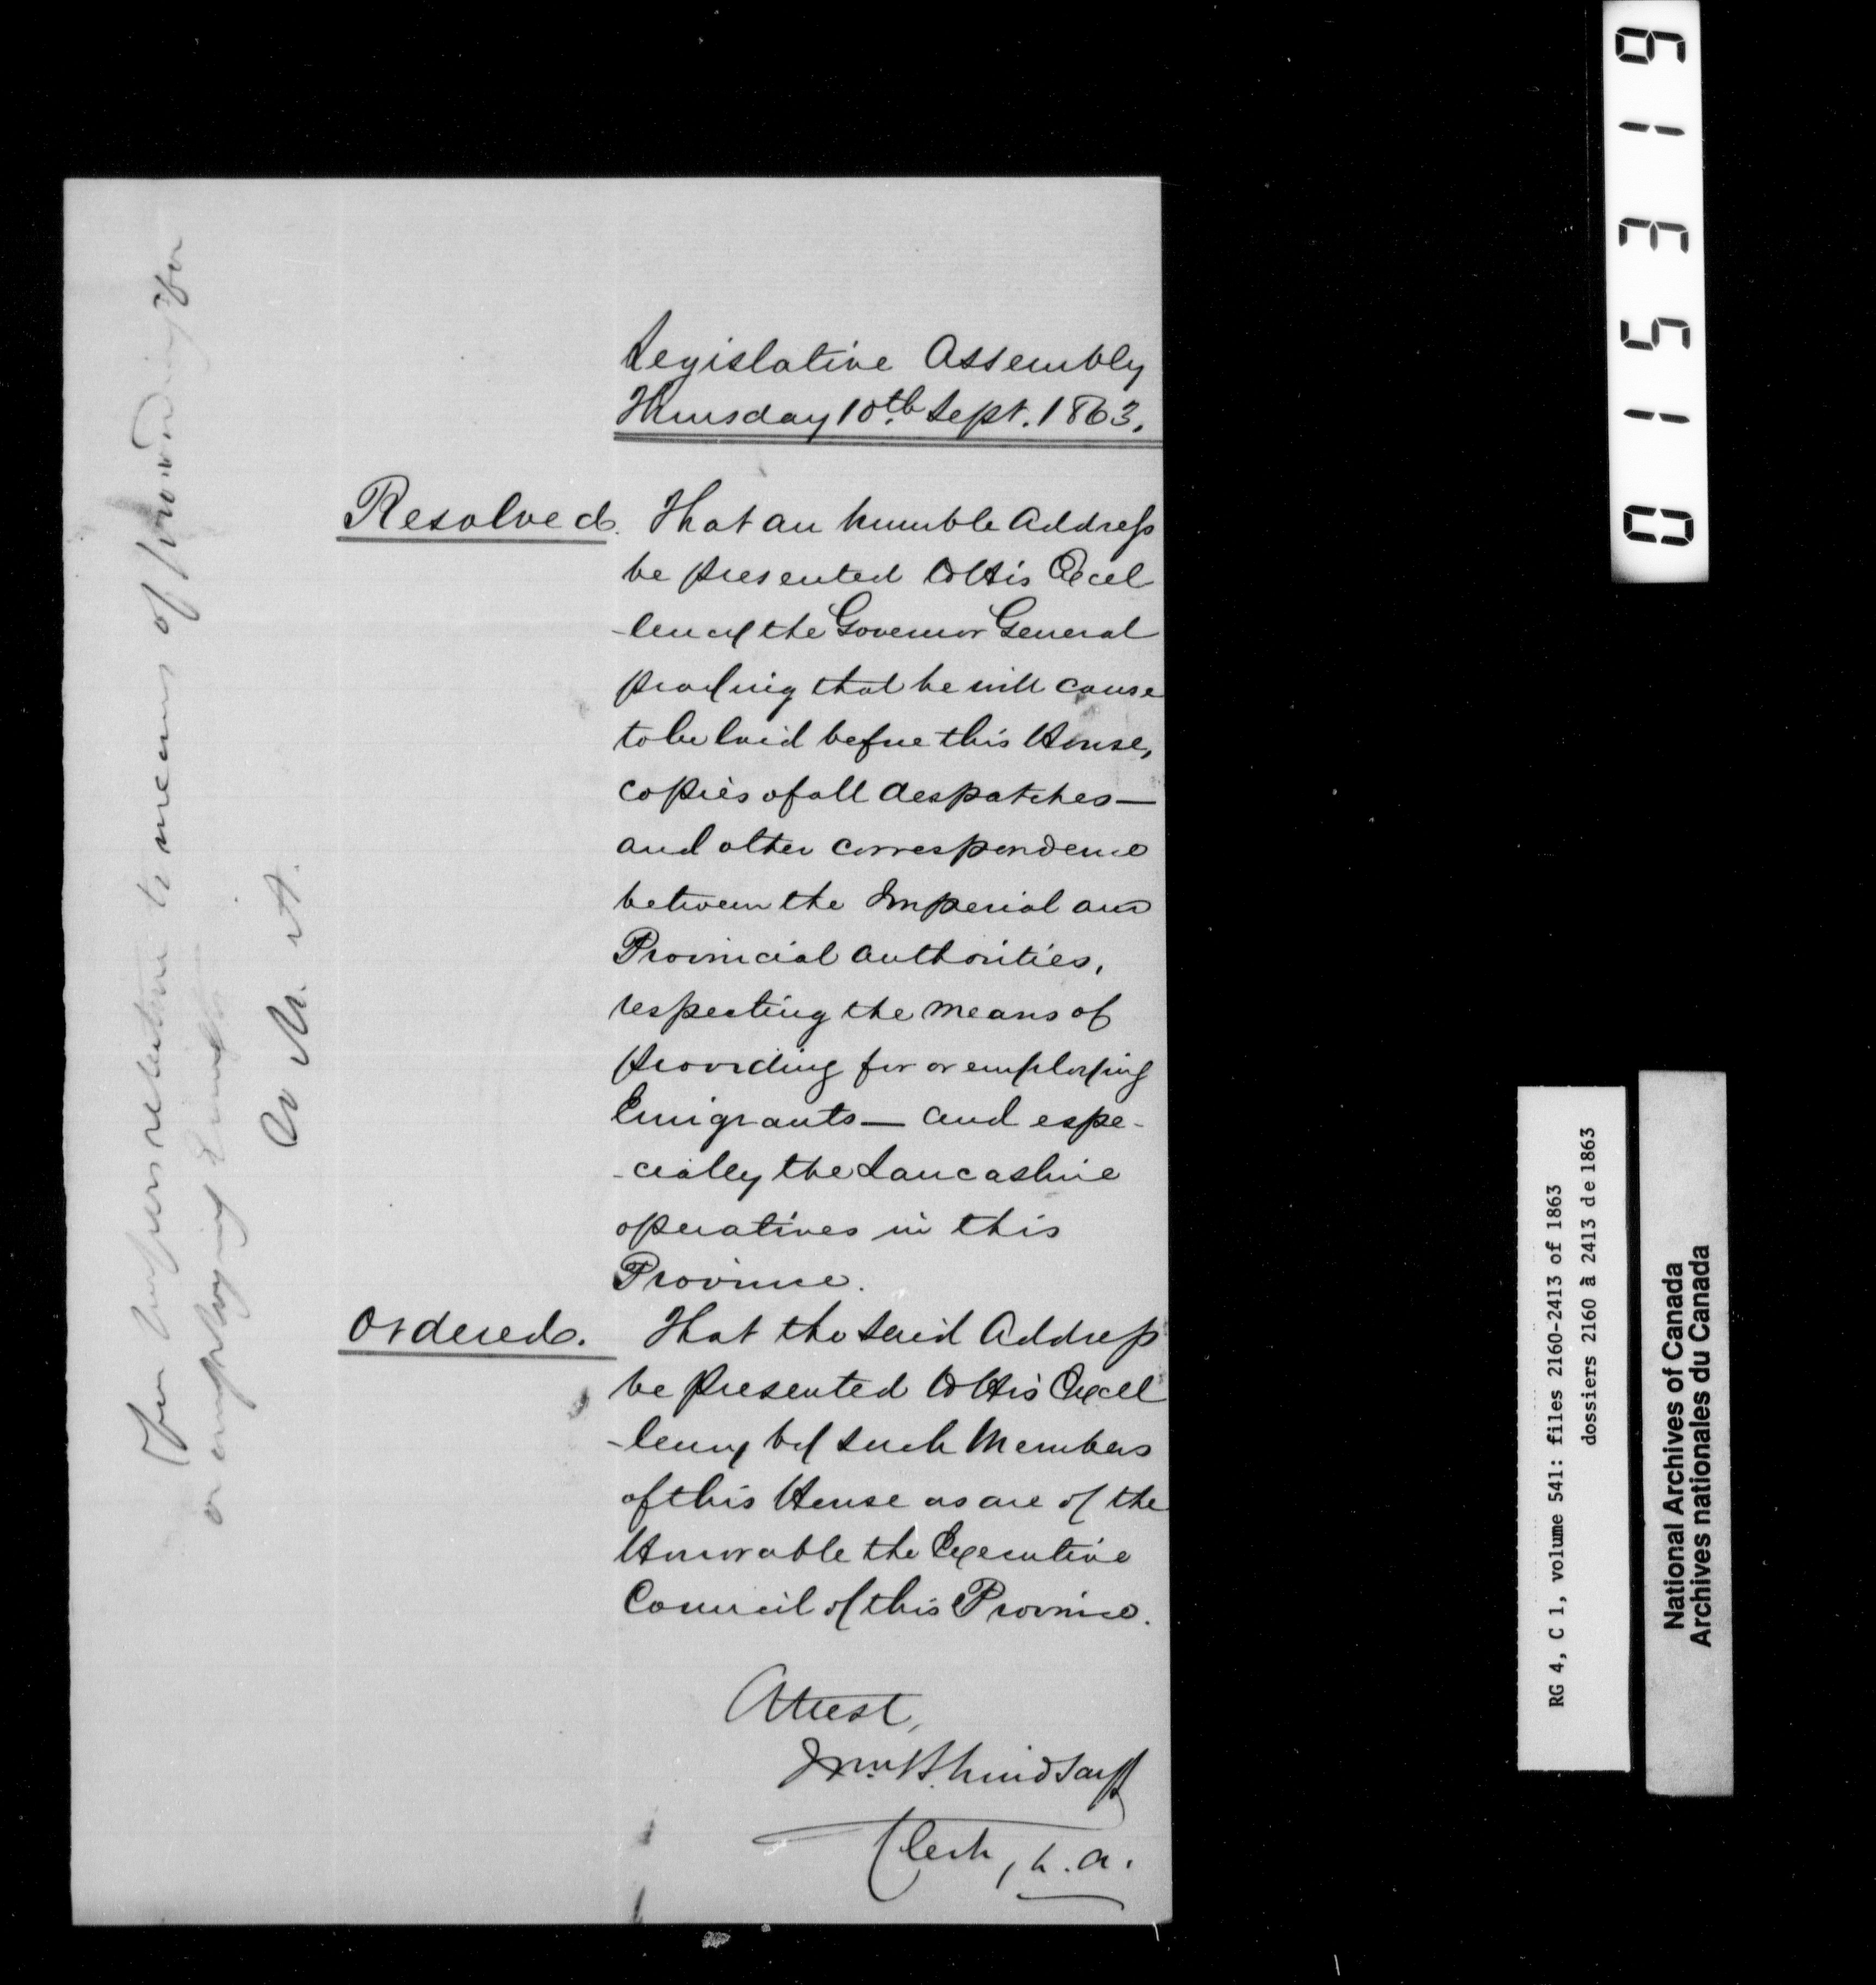 Legislative Assembly
Thursday 10th Sept. 1863.
Resolved. That an humble Address
be presented to His Excel
-lency the Governor General
praying that he will cause
to be laid before this House,
copies of all despatches—
and other correspondence
between the Imperial and
Provincial authorities,
respecting the means of
providing for or employing
Emigrants— and espe-
-cially the Lancashire
operatives in this
Province.
Ordered. That the said Address
be presented to His Excel
-lency by such Members
of this House as are of the
Honorable the Executive
Council of this Province.
Attest,
Wm B. Lindsay
Clerk, L.A.
For relative to means of providing for
or employing
015319
RG 4, C 1, volume 541: files 2160-2413 of 1863
dossiers 2160 à 2413 de 1863
National Archives of Canada
Archives nationales du Canada